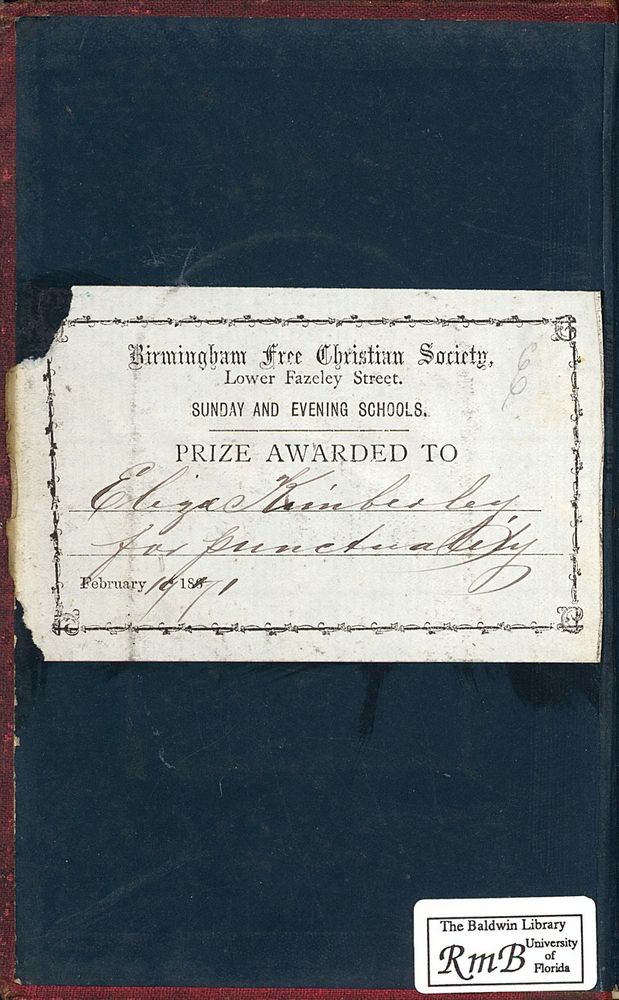 Birmingham Free Christian Society,
Lower Fazeley Street.
SUNDAY AND EVENING SCHOOLS.
PRIZE AWARDED TO
Eliza Kimberley
for punctuality
February 1871
The Baldwin Library
RmB University
of
Florida